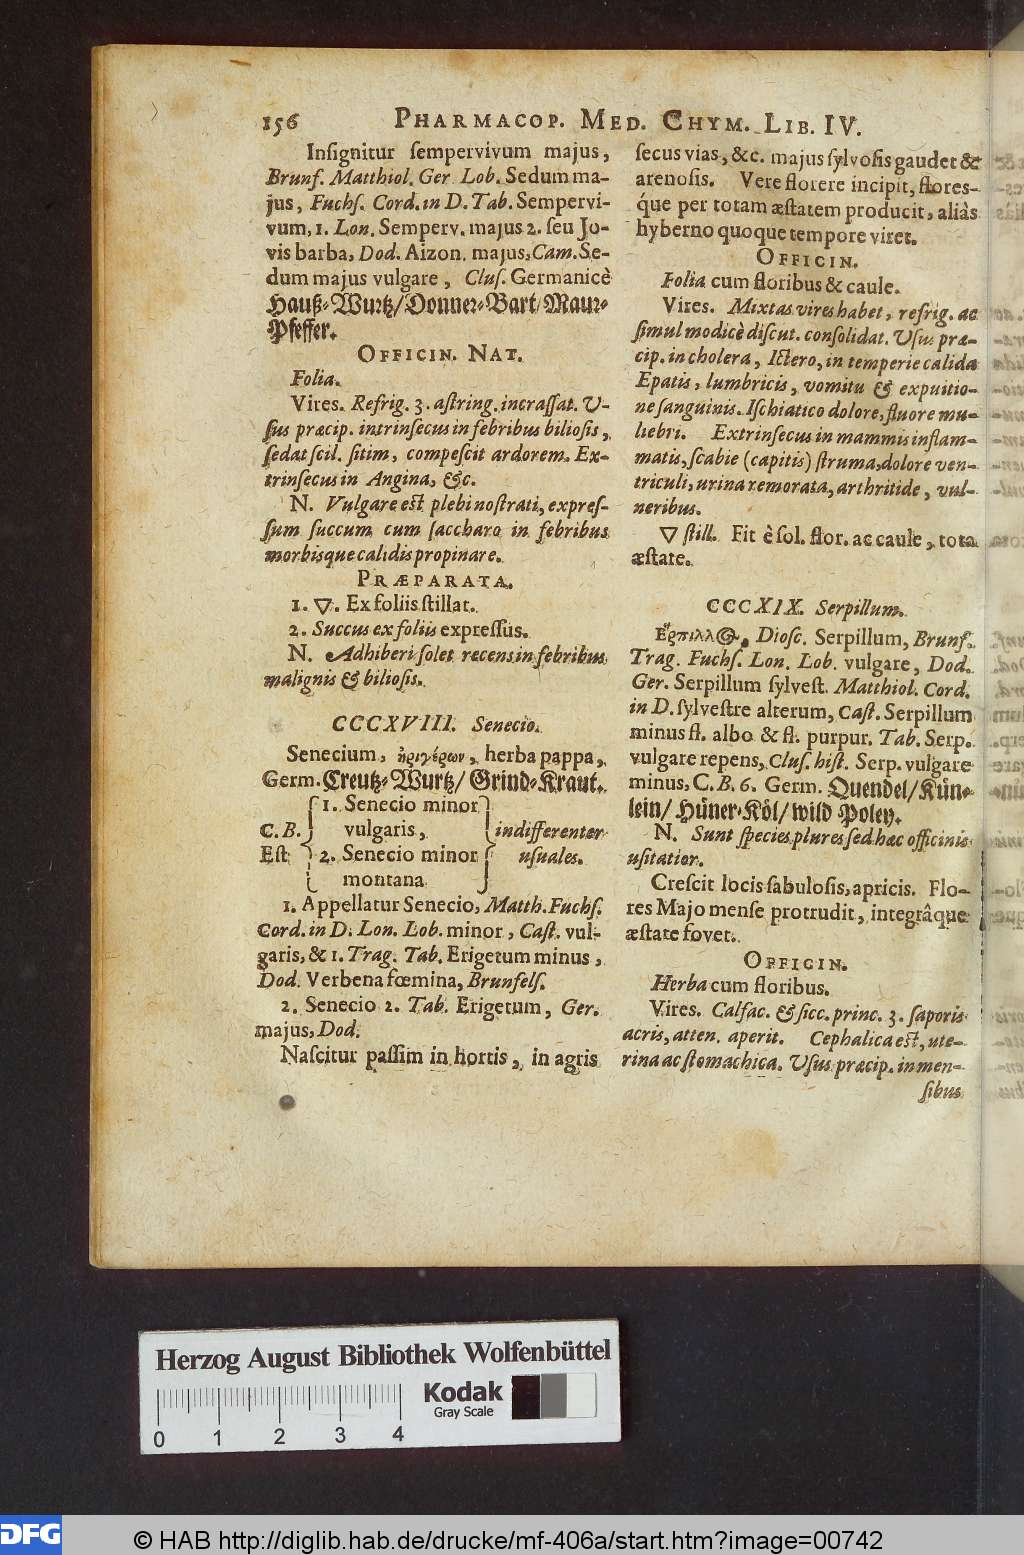 156 PHARMACOP. MED. CHYM. LIB. IV.
Inſignitur ſempervivum majus,
Brunf. Matthiol. Ger Lob. Sedum ma-
jus, Fuchſ. Cord. in D. Tab. Sempervi-
vum, 1. Lon. Semperv. majus 2. ſeu Jo-
vis barba, Dod. Aizon. majus, Cam. Se-
dum majus vulgare, Cluſ. Germanicè
Hauß-Wurtz/Donner-Bart/Maur-
Pfeffer.
OFFICIN. NAT.
Folia.
Vires. Refrig. 3. aſtring. incraſſat. U-
ſus præcip. intrinſecus in febribus bilioſis,
ſedat ſcil. ſitim, compeſcit ardorem. Ex-
trinſecus in Angina, &c.
N. Vulgare eſt plebi noſtrati, expreſ-
ſum ſuccum cum ſaccharo in febribus
morbisque calidis propinare.
PRÆPARATA.
1. ▽. Ex foliis ſtillat.
2. Succus ex foliis expreſſus.
N. Adhiberi ſolet recens in febribus
malignis & bilioſis.
CCCXVIII. Senecio.
Senecium, ἠριγέρων, herba pappa,
Germ. Creutz-Wurtz/ Grind-Kraut.
1. Senecio minor
C. B. vulgaris, indifferenter
Eſt 2. Senecio minor uſuales.
montana
1. Appellatur Senecio, Matth. Fuchſ.
Cord. in D. Lon. Lob. minor, Caſt. vul-
garis, & 1. Trag. Tab. Erigetum minus,
Dod. Verbena fœmina, Brunfelſ.
2. Senecio 2. Tab. Erigetum, Ger.
majus, Dod.
Naſcitur paſſim in hortis, in agris
ſecus vias, &c. majus ſylvoſis gaudet &
arenoſis. Vere florere incipit, flores-
que per totam æſtatem producit, aliàs
hyberno quoque tempore viret.
OFFICIN.
Folia cum floribus & caule.
Vires. Mixtas vires habet, refrig. ac
ſimul modicè diſcut. conſolidat. Uſus præ-
cip. in cholera, Ictero, in temperie calida
Epatis, lumbricis, vomitu & expuitio-
ne ſanguinis. Iſchiatico dolore, fluore mu-
liebri. Extrinſecus in mammis inflam-
matis, ſcabie (capitis) ſtruma, dolore ven-
triculi, urina remorata, arthritide, vul-
neribus.
▽ ſtill. Fit è fol. flor. ac caule, tota
æſtate.
CCCXIX. Serpillum.
Ἕρπιλλος. Dioſc. Serpillum, Brunf.
Trag. Fuchſ. Lon. Lob. vulgare, Dod.
Ger. Serpillum ſylveſt. Matthiol. Cord.
in D. ſylveſtre alterum, Caſt. Serpillum
minus fl. albo & fl. purpur. Tab. Serp.
vulgare repens, Cluſ. hiſt. Serp. vulgare
minus, C. B. 6. Germ. Quendel/ Kün-
lein/ Hüner-Köl/ wild Poley.
N. Sunt ſpecies plures ſed hæc officinis
uſitatior.
Creſcit locis ſabuloſis, apricis. Flo-
res Majo menſe protrudit, integrâque
æſtate fovet.
OFFICIN.
Herba cum floribus.
Vires. Calfac. & ſicc. princ. 3. ſaporis
acris, atten. aperit. Cephalica eſt, ute-
rina ac ſtomachica. Uſus præcip. in men-
ſibus
Herzog August Bibliothek Wolfenbüttel
Kodak
Gray Scale
0 1 2 3 4
DFG © HAB http://diglib.hab.de/drucke/mf-406a/start.htm?image=00742